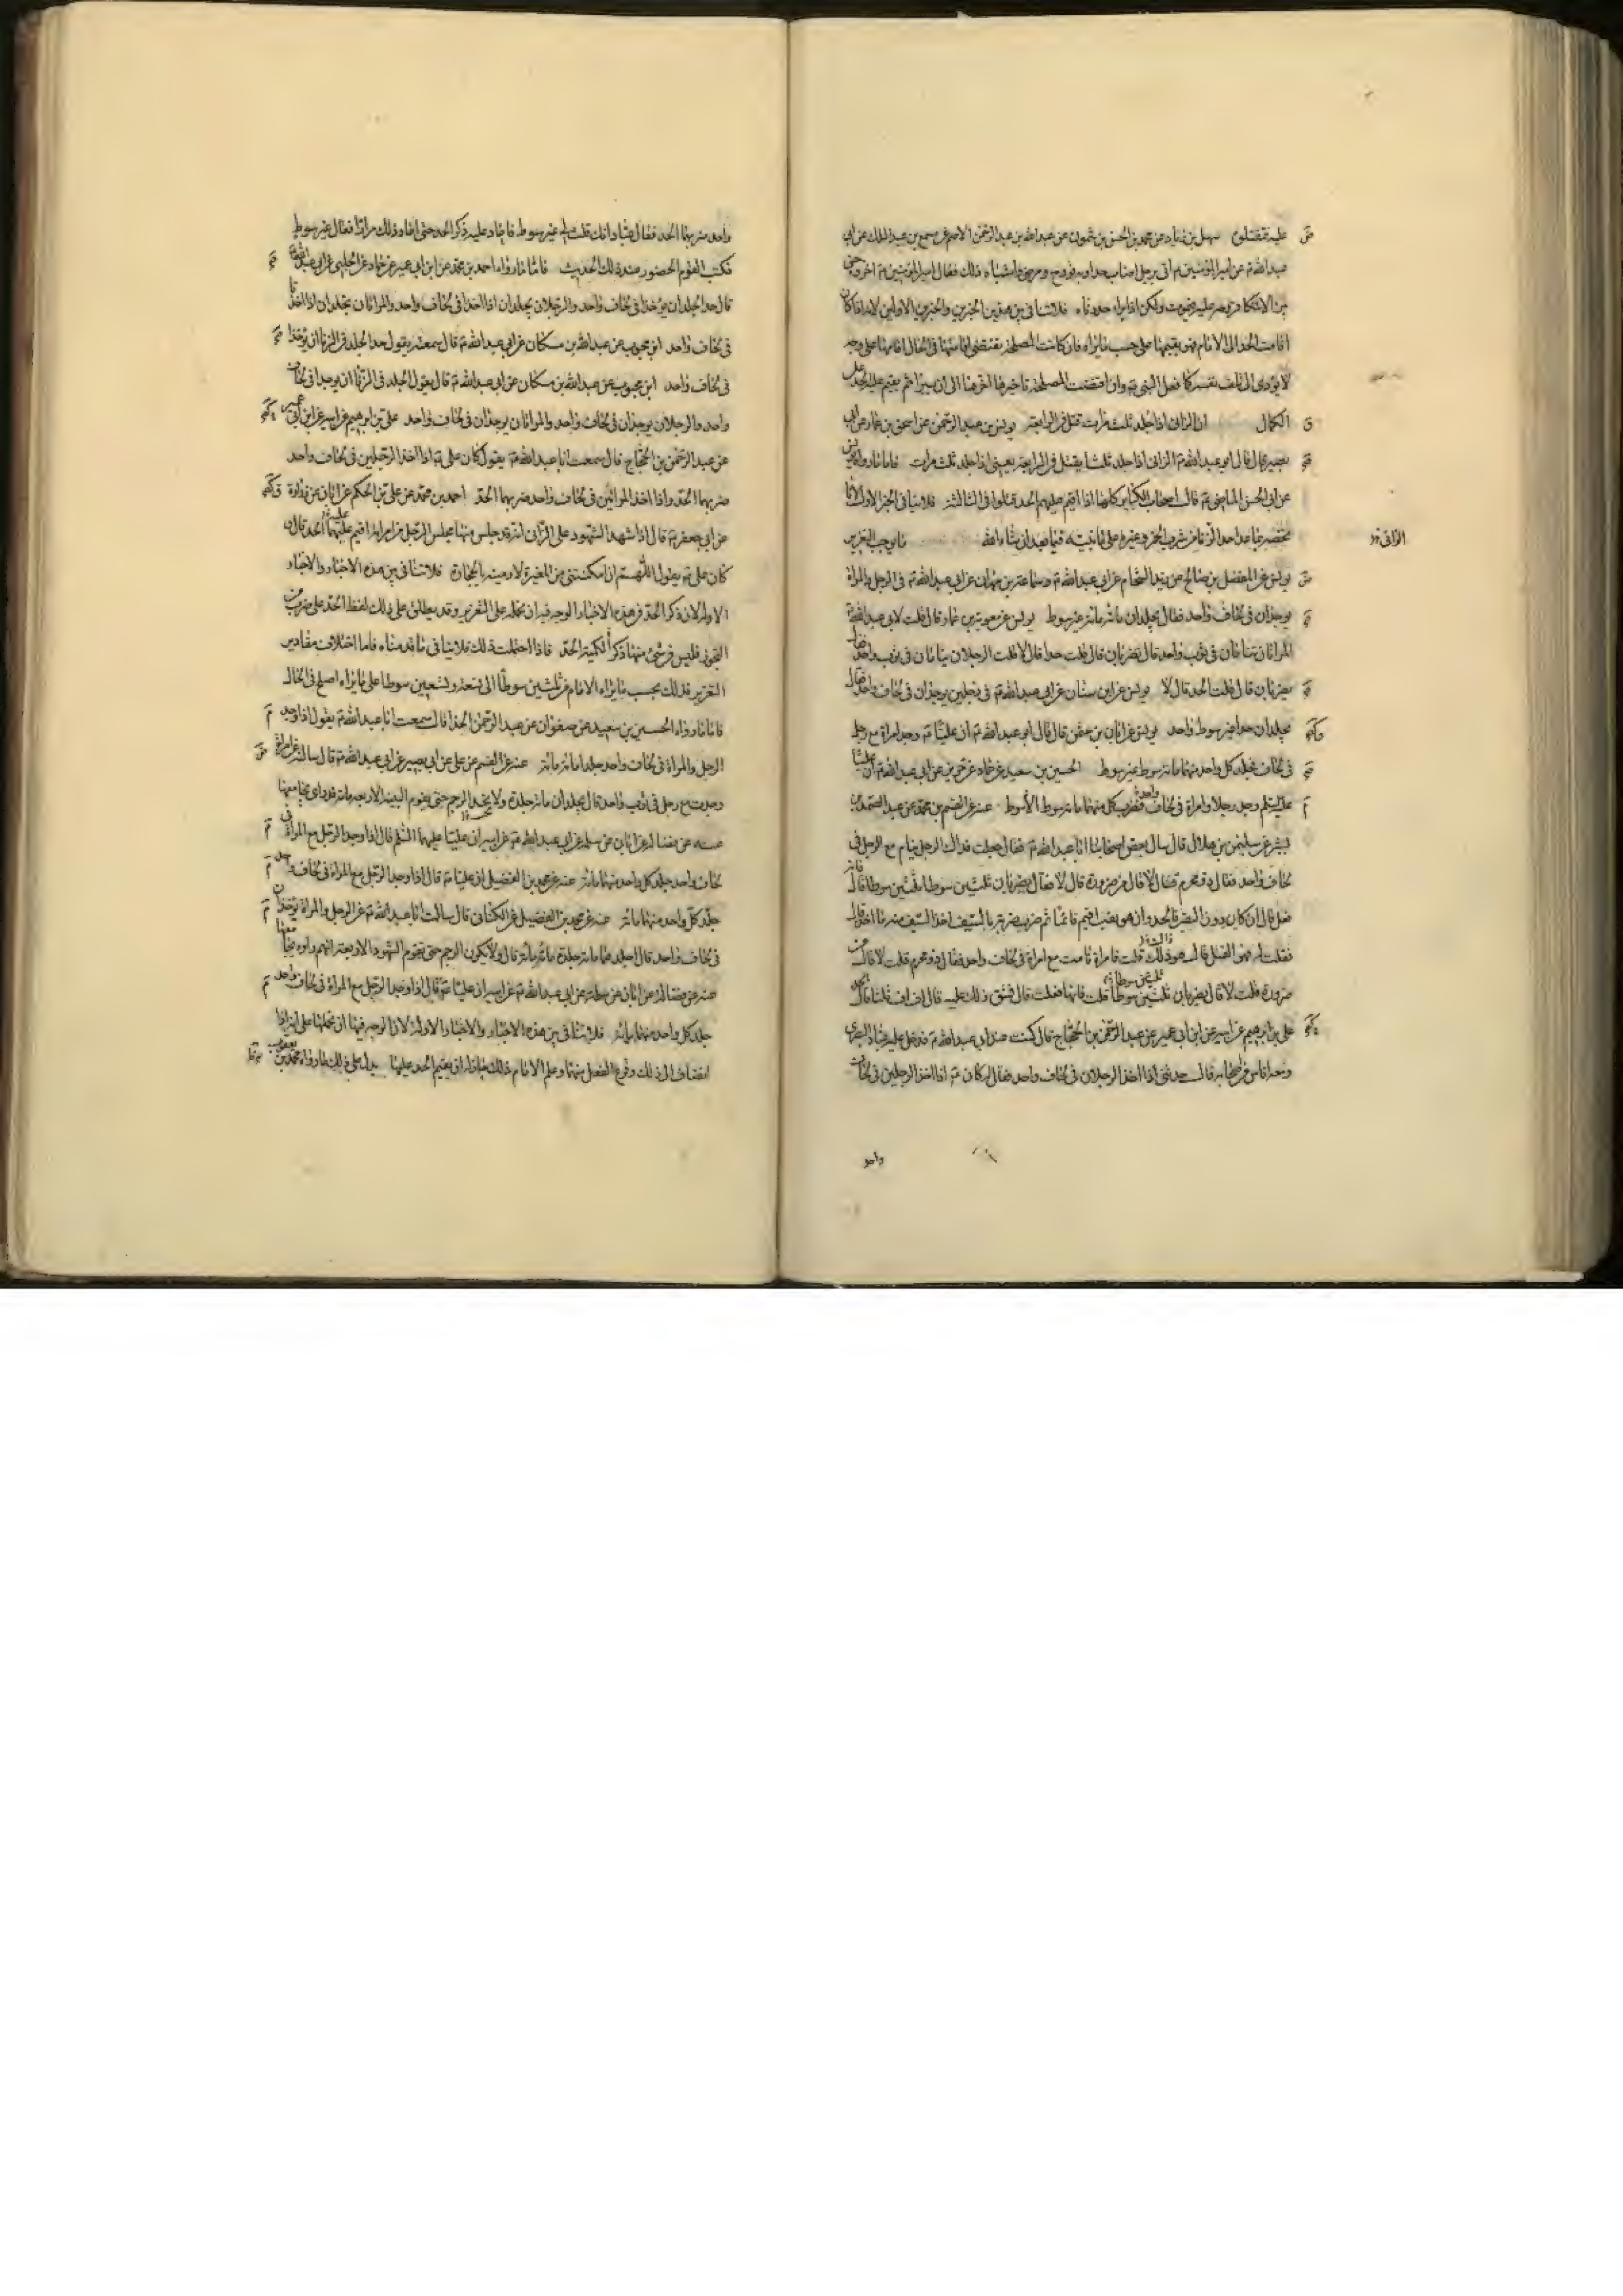 عليه تقتلوه سهل بن زياد عن محمد بن الحسن بن شمون عن عبد الله بن عبد الرحمن الاصم عن مسمع بن عبد الملك عن ابي
عبد الله ع ان امير المؤمنين ع اتى برجل اصاب حدا وبه قروح ومرض واشباه ذلك فقال امير المؤمنين ع اخروه حتى
الحد الى الامام فهو يقيمها على حسب ما يراه فان كانت المصلحة تقتضي اقامتها في الحال اقامها على وجه
لا يؤدي الى تلف نفسه كما فعل النبي ص وان اقتضت المصلحة تاخيرها اخرها الى ان يبرأ ثم يقيم عليه الحد على
الكمال ان الزاني اذا جلد ثلث مرات قتل في الرابعة يونس بن عبد الرحمن عن اسحق بن عمار عن ابي
بصير قال قال ابو عبد الله ع الزاني اذا جلد ثلثا يقتل في الرابعة يعني اذا جلد ثلث مرات فاما ما رواه يونس
عن ابي الحسن الماضي ع قال اصحاب الكبائر كلها اذا اقيم عليهم الحد قتلوا في الثالثة فلا ينافي الخبر الاول لانا
نخصه بما عدا حد الزنا من شرب الخمر وغيره على ما نبينه فيما بعد ان شاء الله ما يوجب التعزير
الزاني
يونس عن المفضل بن صالح عن زيد الشحام عن ابي عبد الله ع وسماعة بن مهران عن ابي عبد الله ع في الرجل والمراة
يوجدان في لحاف واحد فقال يجلدان مائة مائة غير سوط يونس عن معوية بن عمار قال قلت لابي عبد الله ع
المراتان تنامان في ثوب واحد قال تضربان قال قلت حدا قال لا قلت الرجلان ينامان في ثوب واحد فقال
يضربان قال قلت الحد قال لا يونس عن ابن سنان عن ابي عبد الله ع في رجلين يوجدان في لحاف واحد فقال
يجلدان حدا غير سوط واحد يونس عن ابان بن عثمن قال قال ابو عبد الله ع ان عليا ع وجد امراة مع رجل
في لحاف فجلد كل واحد منهما مائة سوط غير سوط الحسين بن سعيد عن حماد عن حريز عن ابي عبد الله ع ان عليا
عليه السلم وجد رجلا وامراة في لحاف واحد فضرب كل منهما مائة سوط الا سوط عنه عن القسم بن محمد عن عبد الصمد بن
بشير عن سليمن بن هلال قال سال بعض اصحابنا ابا عبد الله ع فقال جعلت فداك الرجل ينام مع الرجل في
لحاف واحد فقال ذو محرم فقال لا قال من ضرورة قال لا قال يضربان ثلثين سوطا ثلثين سوطا قال فانه
فعل قال ان كان دون الثقب فالحد وان هو ثقب اقيم قائما ثم ضرب ضربة بالسيف اخذ السيف منه ما اخذ قال
فقلت له فهو القتل قال هو ذلك قلت فامراة نامت مع امراة في لحاف واحد فقال ذو محرم قلت لا قال من
ضرورة قلت لا قال يضربان ثلثين سوطا ثلثين سوطا قلت فانها فعلت قال فشق ذلك عليه
علي بن ابرهيم عن ابيه عن ابن ابي عمير عن عبد الرحمن بن الحجاج قال كنت عند ابي عبد الله ع فدخل عليه عباد البصري
ومعه اناس من اصحابه فقال حدثني اذا اخذ الرجلان في لحاف واحد فقال له كان ع اذا اخذ الرجلين في لحاف
واحد
واحد ضربهما الحد فقال عباد انك قلت لي غير سوط فاعاد عليه ذكر الحد حتى اعاد ذلك مرارا فقال غير سوط
فكتب القوم الحضور عند ذلك الحديث فاما ما رواه احمد بن محمد عن ابن ابي عمير عن حماد عن الحلبي عن ابي عبد الله ع
قال حد الجلد ان يوخذا في لحاف واحد والرجلان يجلدان اذا اخذا في لحاف واحد والمراتان تجلدان اذا اخذتا
في لحاف واحد ابن محبوب عن عبد الله بن مسكان عن ابي عبد الله ع قال سمعته يقول حد الجلد في الزنا ان يوخذا
في لحاف واحد ابن محبوب عن عبد الله بن مسكان عن ابي عبد الله ع قال يقول الجلد في الزنا ان يوجدا في لحاف
واحد والرجلان يوجدان في لحاف واحد والمراتان يوجدان في لحاف واحد علي بن ابرهيم عن ابيه عن ابن ابي عمير
عن عبد الرحمن بن الحجاج قال سمعت ابا عبد الله ع يقول كان علي ع اذا اخذ الرجلين في لحاف واحد
ضربهما الحد واذا اخذ المراتين في لحاف واحد ضربهما الحد احمد بن محمد عن علي بن الحكم عن ابان عن زرارة
عن ابي جعفر ع قال اذا شهد الشهود على الزاني انه قد جلس منها مجلس الرجل من امراته اقيم عليهما الحد قال
كان علي ع يقول اللهم ان امكنتني من المغيرة لارمينه بالحجارة فلا تنافي بين هذه الاخبار والاخبار
الاولة لان ذكر الحد في هذه الاخبار الوجه فيه ان نحمله على التعزير وقد يطلق على ذلك لفظ الحد على ضرب من
التجوز فليس في شئ منها ذكر الكمية الحد فاذا احتملت ذلك فلا ينافي ما قدمناه فاما اختلاف مقادير
التعزير فذلك بحسب ما يراه الامام من ثلثين سوطا الى تسعة وتسعين سوطا على ما يراه اصلح في الحال
فاما ما رواه الحسين بن سعيد عن صفوان عن عبد الرحمن الحذا قال سمعت ابا عبد الله ع يقول اذا وجد
الرجل والمراة في لحاف واحد جلدا مائة مائة عنه عن القسم عن علي عن ابي بصير عن ابي عبد الله ع قال سالته عن امراة
وجدت مع رجل في ثوب واحد قال يجلدان مائة جلدة ولا يجب الرجم حتى يقوم البينة الاربعة بانه قد راى يجامعها
عنه عن فضالة عن ابان عن سلمة عن ابي عبد الله ع عن ابيه ان عليا عليهما السلم قال اذا وجد الرجل مع المراة في
لحاف واحد جلد كل واحد منهما مائة عنه عن محمد بن الفضيل ان عليا ع قال اذا وجد الرجل مع المراة في لحاف واحد
جلد كل واحد منهما مائة عنه عن محمد بن الفضيل عن الكناني قال سالت ابا عبد الله ع عن الرجل والمراة يوجدان
في لحاف واحد قال اجلدهما مائة جلدة مائة مائة قال ولا يكون الرجم حتى تقوم الشهود الاربعة انهم راوه يجامعها
عنه عن فضالة عن ابان عن سلمة عن ابي عبد الله ع عن ابيه ان عليا ع قال اذا وجد الرجل مع المراة في لحاف واحد
جلد كل واحد منهما مائة فلا تنافي بين هذه الاخبار والاخبار الاولة لان الوجه فيها ان نحملها على انه اذا
انضاف الى ذلك وقوع الفعل منهما وعلم الامام ذلك جاز له ان يقيم الحد عليهما يدل على ذلك ما رواه محمد بن يعقوب